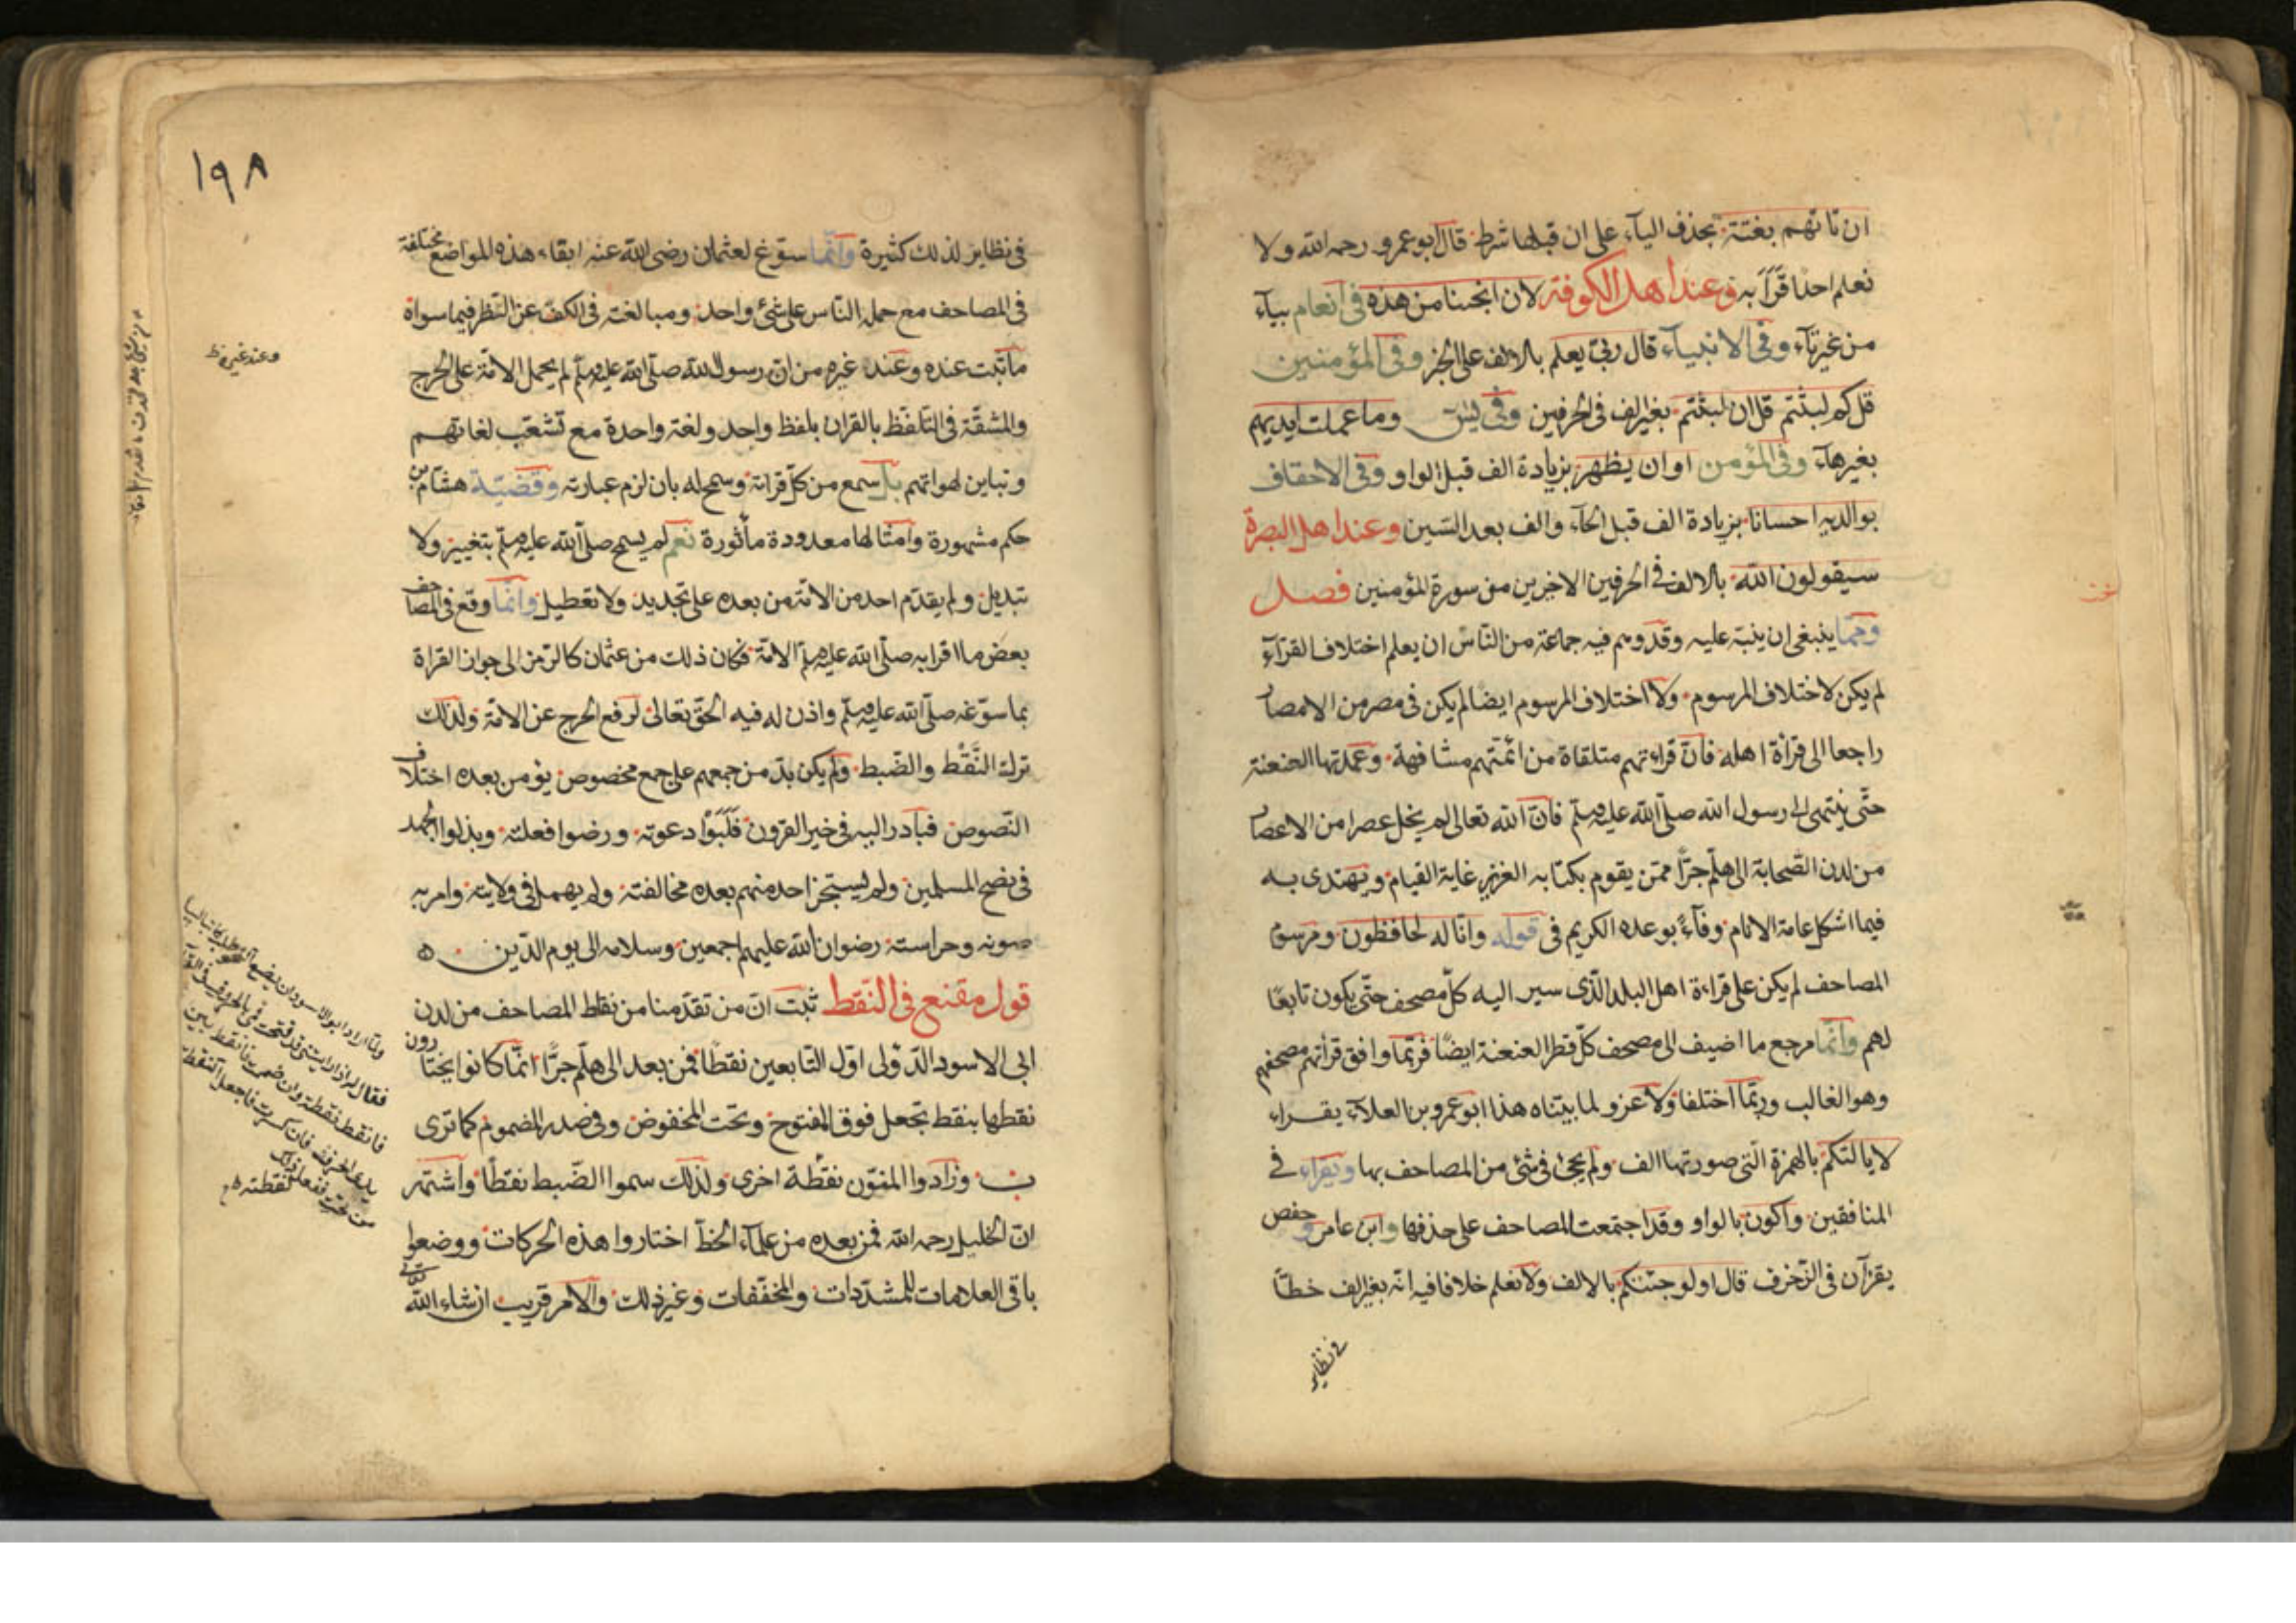 ان تاتهم بغتة بحذف اليآء على ان قبلها شرط قال ابو عمرو رحمه الله ولا
نعلم احدا قرأ به وعند اهل الكوفة لان انجينا من هذه فى انعام بيآء
من غير تآء وفى الانبيآء قال ربى يعلم بالالف على الخبر وفى المؤمنين
قل كم لبثتم قل ان لبثتم بغير الف فى الحرفين وفى يس وما عملت ايديهم
بغير هآء وفى المؤمن او ان يظهر بزيادة الف قبل الواو وفى الاحقاف
بوالديه احسانا بزيادة الف قبل الحآء والف بعد السّين وعند اهل البصرة
سيقولون الله بالالف فى الحرفين الاخيرين من سورة المؤمنين فصل
وممّا ينبغى ان ينبّه عليه وقد وهم فيه جماعة من النّاس ان يعلم اختلاف القرّآء
لم يكن لاختلاف المرسوم ولا اختلاف المرسوم ايضا لم يكن فى مصر من الامصار
راجعا الى قرأة اهله فانّ قراءتهم متلقاة من ائمّتهم مشافهة وعمدتها العنعنة
حتّى ينتهى الى رسول الله صلّى الله عليه وسلّم فانّ الله تعالى لم يخل عصرا من الاعصار
من لدن الصّحابة الى هلّم جرّا ممّن يقوم بكتابه العزيز غاية القيام ويهتدى به
فيما اشكل عامة الانام وفآءً بوعده الكريم فى قوله وانا له لحافظون ومرسوم
المصاحف لم يكن على قراءة اهل البلد الّذى سير اليه كلّ مصحف حتّى يكون تابعًا
لهم وانّما مرجع ما اضيف الى مصحف كلّ قطر العنعنة ايضًا فربّما وافق قرأتهم مصحفهم
وهو الغالب وربّما اختلفا ولا غرو لما بيّناه هذا ابو عمرو بن العلآء يقراء
لا يألتكم بالهمزة الّتى صورتها الف ولم يجئ فى شئ من المصاحف بها ويقراء فى
المنافقين واكون بالواو وقد اجتمعت المصاحف على حذفها وابن عامر وحفص
يقرآن فى الزّخرف قال اولو جئتكم بالالف ولا نعلم خلافا فيه انّه بغير الف خطّا
فى نظاير
١٩٨
فى نظاير لذلك كثيرة وانّما سوّغ لعثمان رضى الله عنه ابقاء هذه المواضع مختلفة
فى المصاحف مع حمله النّاس على شئ واحد ومبالغته فى الكفّ عن النّظر فيما سواه
ما ثبت عنده وعند غيره من انّ رسول الله صلّى الله عليه وسلّم لم يحمل الامّة على الحرج
والمشقّة فى التلفّظ بالقران بلفظ واحد ولغة واحدة مع تشعّب لغاتهم
وتباين لهواتهم بل سمع من كلّ قراته وسمح له بان لزم عبارته وقضيّة هشام بن
حكم مشهورة وامثالها معدودة مأثورة نعم لم يسمح صلّى الله عليه وسلّم بتغيير ولا
تبديل ولم يقدّم احد من الامّة من بعده على تجديد ولا تعطيل وانّما وقع فى المصاحف
بعض ما اقرا به صلّى الله عليه وسلّم الامّة فكان ذلك من عثمان كالرّمز الى جواز القراة
بما سوّغه صلّى الله عليه وسلّم واذن له فيه الحقّ تعالى لرفع الحرج عن الامّة ولذلك
ترك النَّقْط والضّبط ولم يكن بدّ من جمعهم على جمع مخصوص يؤمن بعده اختلاف
النّصوص فبادر اليه فى خير القرون فَلَبَّوْا دعوته ورضوا فعلته وبذلوا الجهد
فى نصح المسلمين ولم يستجز احد منهم بعده مخالفته ولم يهمل فى ولايته وامر به
صونه وحراسته رضوان الله عليهم اجمعين وسلامه الى يوم الدّين ه
قول مقنع فى النّقط ثبت انّ من تقدّمنا من نقاط المصاحف من لدن
ابى الاسود الدّؤلى اوّل التّابعين نقطًا فمن بعد الى هلّم جرًّا انّما كانوا يختارون
نقطها بنقط تجعل فوق المفتوح وتحت المخفوض وفى صدر المضموم كما ترى
ب وزادوا المنوّن نقطة اخرى ولذلك سموا الضّبط نقطًا واشتهر
انّ الخليل رحمه الله فمن بعده من علمآء الخطّ اختاروا هذه الحركات ووضعوا
باقى العلامات للمشدّدات والمخفّفات وغير ذلك والامر قريب ان شاء الله
وعند غيره ظ
ولمّا اراد ابو الاسود ان يضع
فقال له اذا رايتنى قد فتحت فمى بالحرف
فانقط نقطة وان ضممت فانقط بين
يدى الحرف فان كسرت فاجعل النقطة
من تحته ففعل ذلك